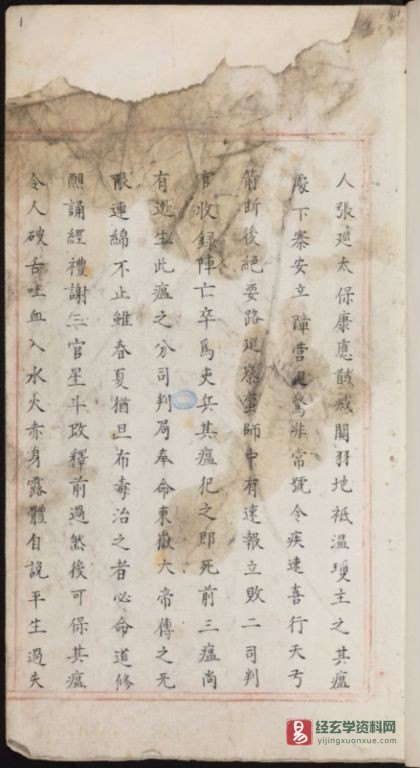 人張廵太保康應戩戒關羽地祗温瓊主之其瘟
下寨安立障營驚非常號令疾速喜行天弓
箭断後絕要路廵察宻師中有速報立敗二司判
官收録陣亡卒爲吏兵其瘟犯之即死前三瘟尚
有迯生此瘟之分司判局奉命東嶽大帝傳之无
限連綿不止雖春夏犹旦布毒治之者必命道修
醮誦經禮謝三官星斗改釋前過然後可保其瘟
令人破舌吐血入水火赤身露體自說平生過失
1
经玄学资料网
yijingxuanxue.com